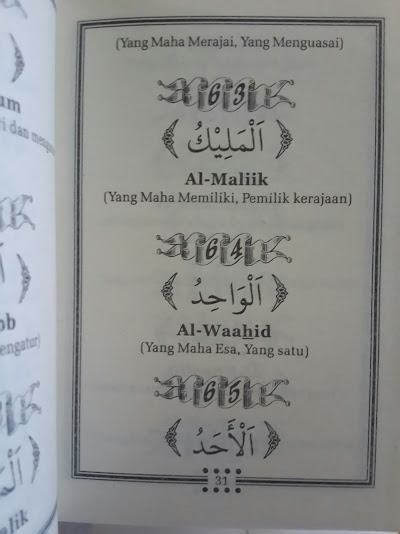 um
(Yang Maha Merajai, Yang Menguasai)
63
اَلْمَلِيْكُ
Al-Maliik
(Yang Maha Memiliki, Pemilik kerajaan)
64
اَلْوَاحِدُ
Al-Waahid
(Yang Maha Esa, Yang satu)
65
اَلْأَحَدُ
31
ri dan
ob
engatur)
alik